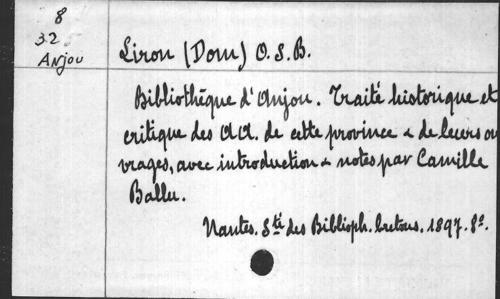 8
32
Anjou
Liron (Dom) O. S. B.
Bibliothèque d'Anjou. Traité historique et
critique des AA. de cette province & de leurs ou
vrages, avec introduction & notes par Camille
Ballu.
Nantes. Sté des Biblioph. bretons. 1897. 8º.